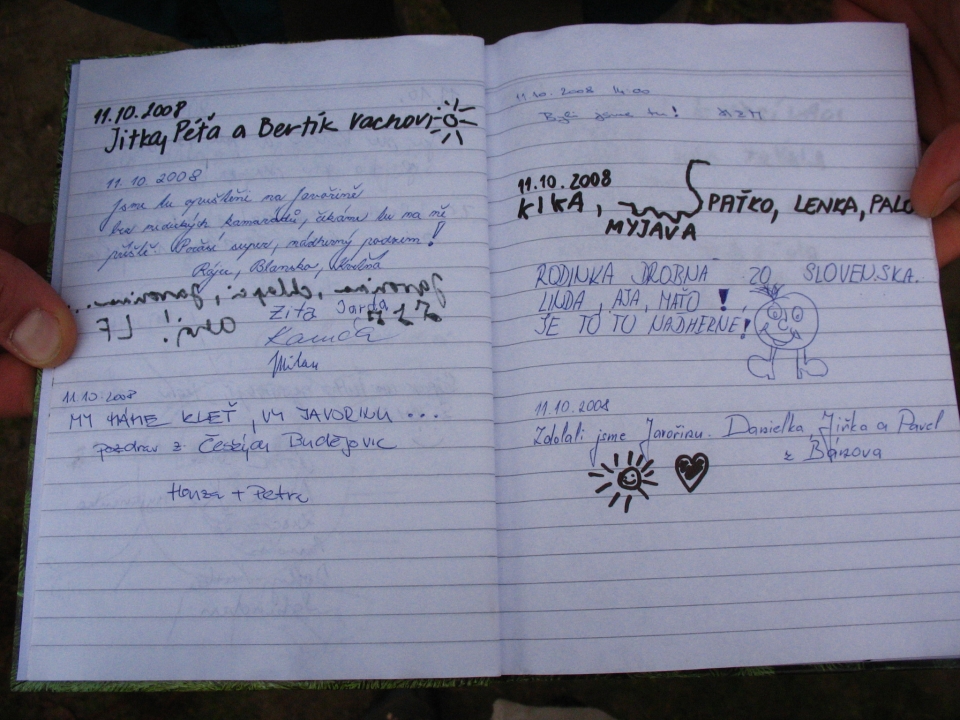 11.10.2008
Jitka, Péťa a Bertík Vachovi
11.10.2008
jsme tu opuštěni na Javořině
bez nudických kamarádů, čekáme tu na ně
příště. Počasí super, nádherný podzim!
Rájec, Blanska,
Zita Jarda
Kamila
Milan
11.10.2008
MY MÁME KLEŤ, VY JAVORINU ...
pozdrav z Českých Budějovic
Honza + Petra
11.10.2008 14.00
Byli jsme tu!
11.10.2008
KIKA, PAŤKO, LENKA, PALO
MYJAVA
RODINKA DROBNÁ ZO SLOVENSKA.
LINDA, AJA, MAŤO !
JE TO TU NÁDHERNÉ!
11.10.2008
Zdolali jsme Javořinu. Danielka, Jiřka a Pavel
z Bánova